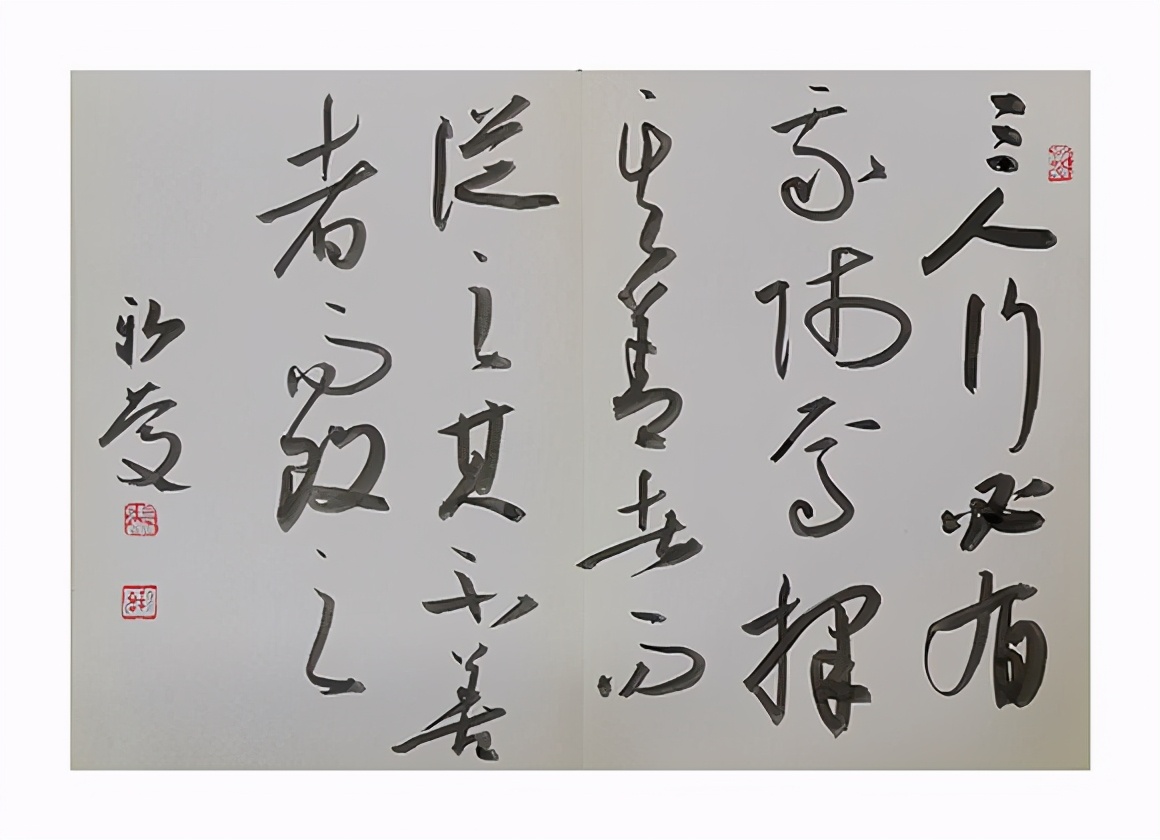 三人行必有
我師焉擇
其善者而
從之其不善
者而改之